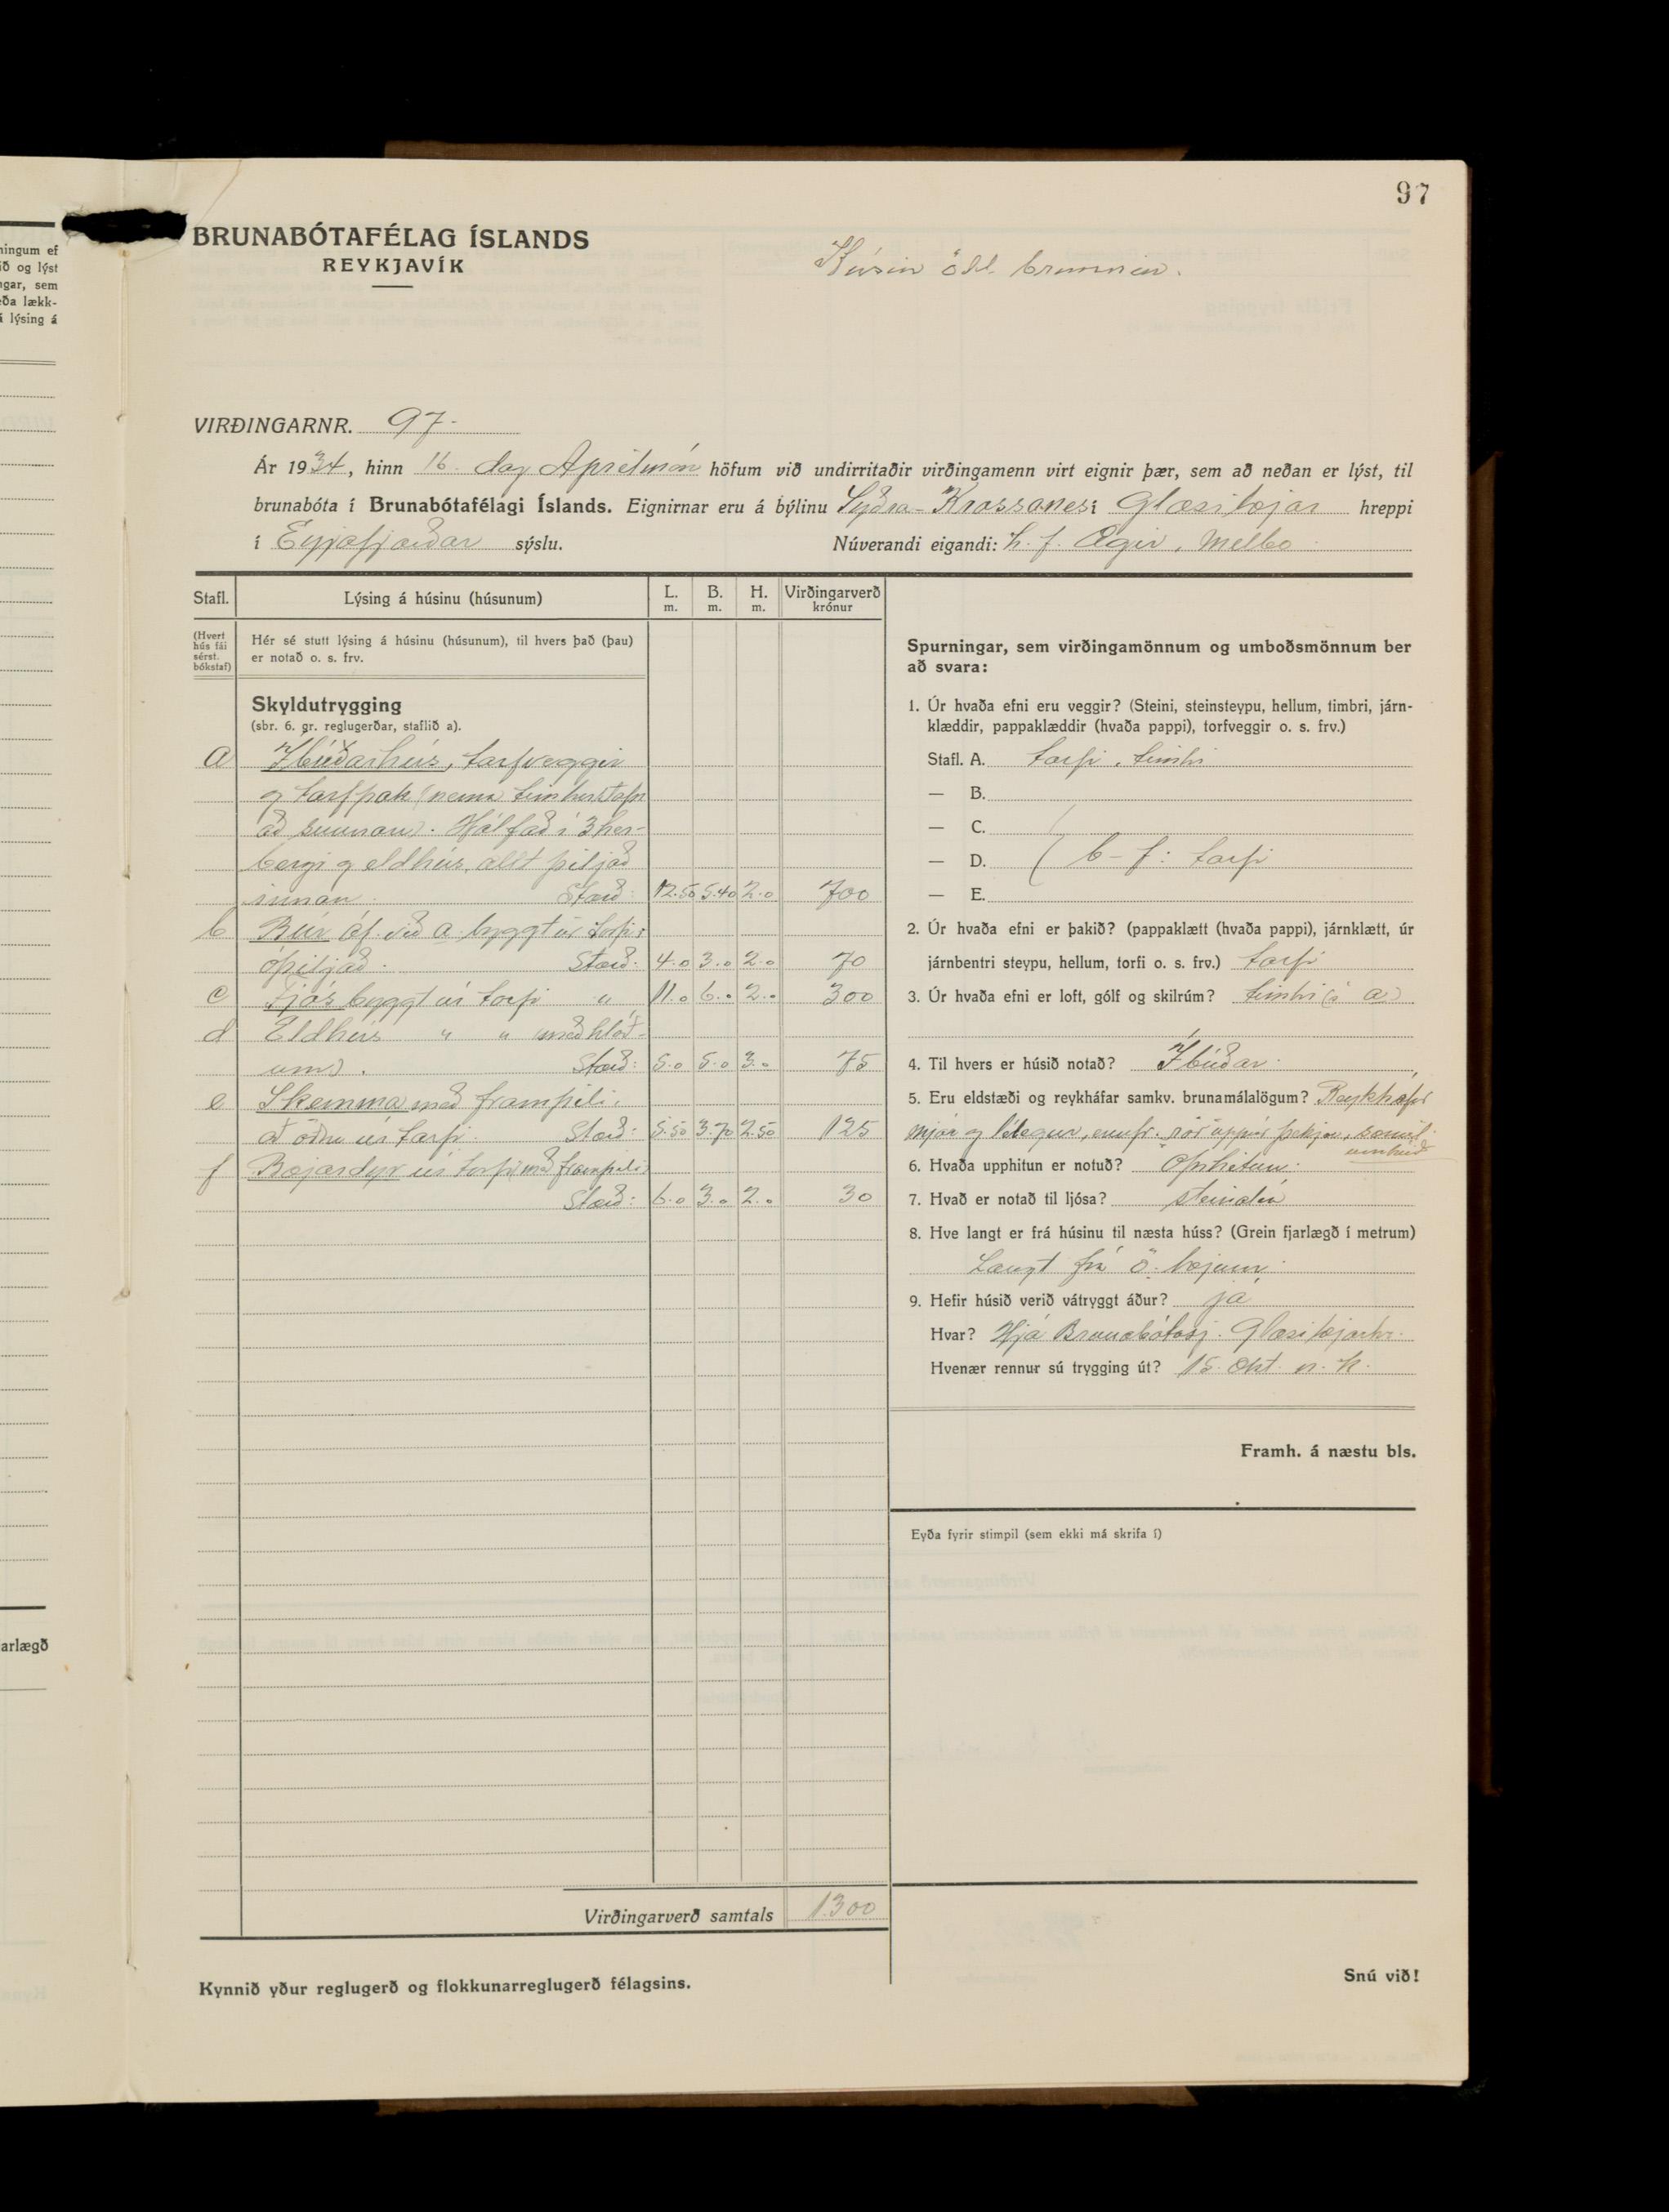 97
ningum ef
ið og lýst
ngar, sem
eða lækk-
á lýsing á
arlægð
BRUNABÓTAFÉLAG ÍSLANDS
REYKJAVÍK
Húsin öll brunnin.
VIRÐINGARNR. 97.
Ár 1934, hinn 16. dag Aprílmán höfum við undirritaðir virðingamenn virt eignir þær, sem að neðan er lýst, til
brunabóta í Brunabótafélagi Íslands. Eignirnar eru á býlinu Syðra-Krossanes í Glæsibæjar hreppi
í Eyjafjarðar sýslu. Núverandi eigandi: h.f. Ægir, Melbo
Stafl. Lýsing á húsinu (húsunum) L. m. B. m. H. m. Virðingarverð krónur
(Hvert hús fái sérst. bókstaf)
Hér sé stutt lýsing á húsinu (húsunum), til hvers það (þau)
er notað o. s. frv.
Skyldutrygging
(sbr. 6. gr. reglugerðar, staflið a).
a Íbúðarhús, torfveggir
og torfþak (nema timburstafn
að sunnan). Hólfað í 3 her-
bergi og eldhús, allt þiljað
innan. Stærð: 12.50 5.40 2.0 700
b Búr áf. við a byggt úr torfi,
óþiljað. Stærð: 4.0 3.0 2.0 70
c Fjós byggt úr torfi " 11.0 6.0 2.0 300
d Eldhús " " (með hlóð-
um). Stærð: 5.0 5.0 3.0 75
e Skemma með framþili,
að öðru úr torfi. Stærð: 5.50 3.70 2.50 125
f Bæjardyr úr torfi (með framþili)
Stærð: 6.0 3.0 2.0 30
Virðingarverð samtals 1300
Kynnið yður reglugerð og flokkunarreglugerð félagsins.
Spurningar, sem virðingamönnum og umboðsmönnum ber
að svara:
1. Úr hvaða efni eru veggir? (Steini, steinsteypu, hellum, timbri, járn-
klæddir, pappaklæddir (hvaða pappi), torfveggir o. s. frv.)
Stafl. A. torfi, timbri
— B.
— C.
— D. ( b-f: torfi
— E.
2. Úr hvaða efni er þakið? (pappaklætt (hvaða pappi), járnklætt, úr
járnbentri steypu, hellum, torfi o. s. frv.) torfi
3. Úr hvaða efni er loft, gólf og skilrúm? timbri (í a)
4. Til hvers er húsið notað? Íbúðar.
5. Eru eldstæði og reykháfar samkv. brunamálalögum? Reykháfur
mjór og lélegur, ennfr. rör upp úr þekju,
6. Hvaða upphitun er notuð? Ofnhitun.
7. Hvað er notað til ljósa? steinolía
8. Hve langt er frá húsinu til næsta húss? (Grein fjarlægð í metrum)
Langt frá ö. bæjum.
9. Hefir húsið verið vátryggt áður? já
Hvar? Hjá Brunabótasj. Glæsibæjarhr.
Hvenær rennur sú trygging út? 15. Okt. n. k.
Framh. á næstu bls.
Eyða fyrir stimpil (sem ekki má skrifa í)
Snú við!